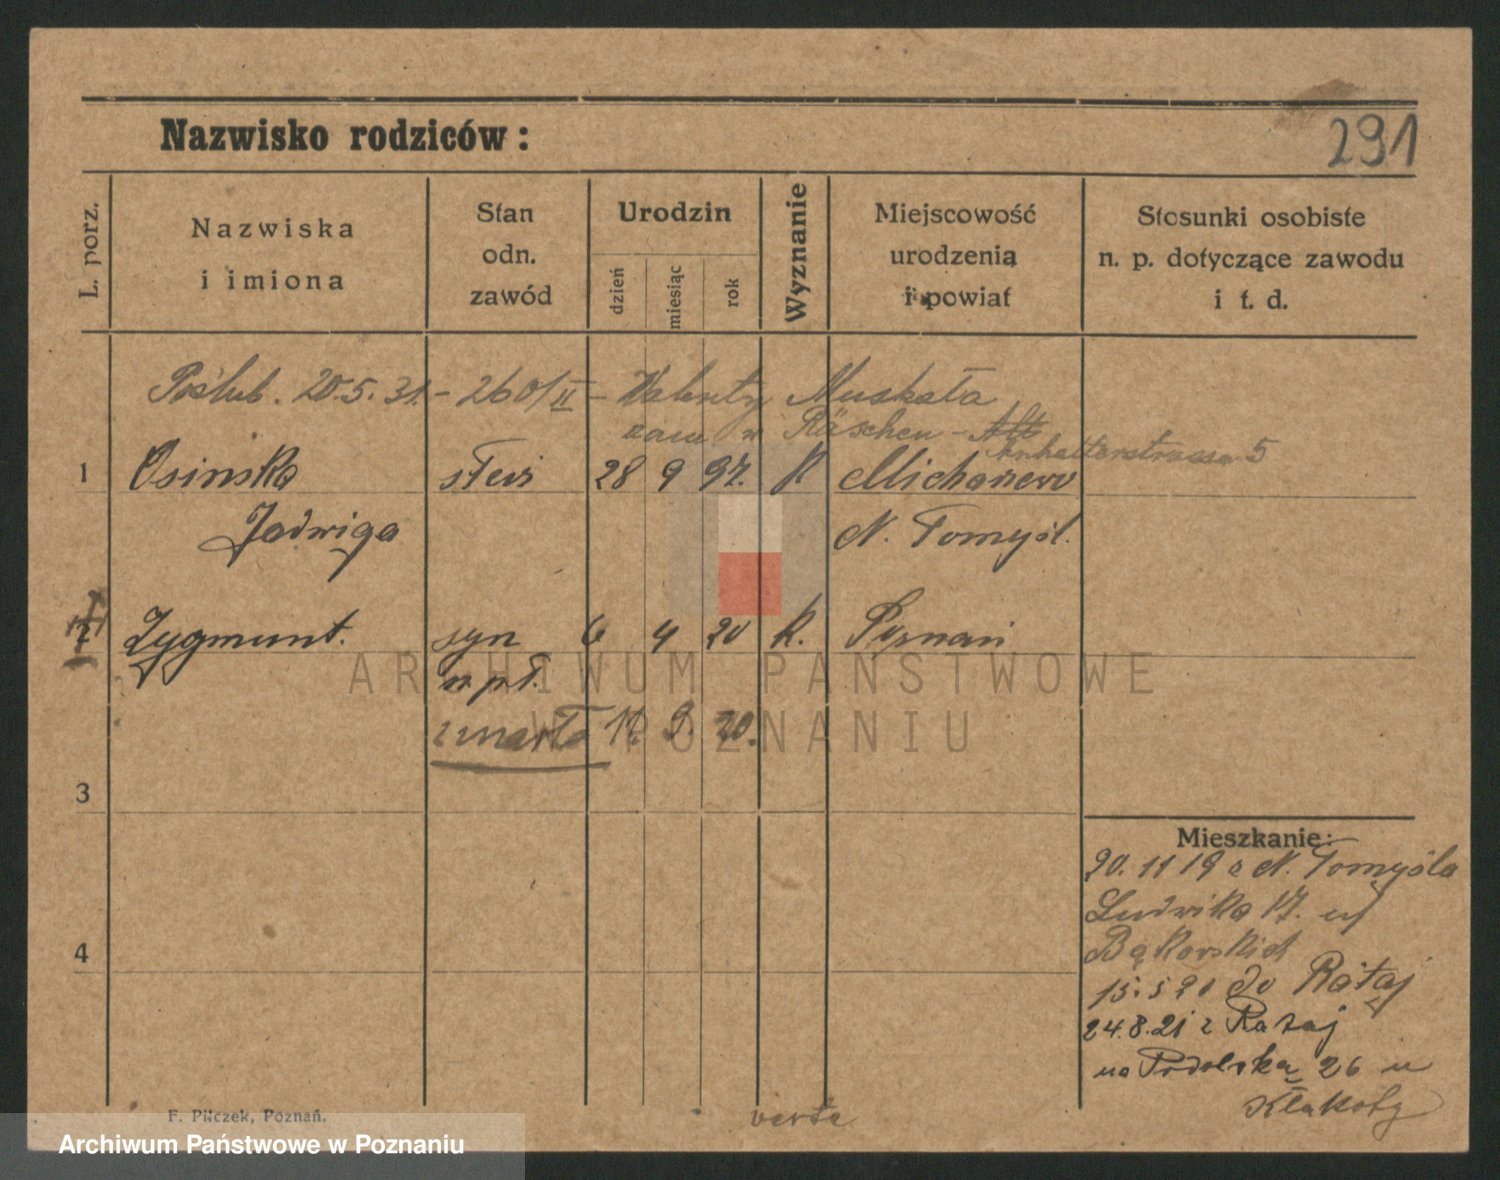 291
Nazwisko rodziców:
L. porz.
Nazwiska
i imiona
Stan
odn.
zawód
Urodzin
dzień
miesiąc
rok
Wyznanie
Miejscowość
urodzenia
i powiat
Stosunki osobiste
n. p. dotyczące zawodu
i t. d.
Poślub. 20.5.31. - 260/II - Walenty Muskała
zam w Räschen - Alt
Anhalterstrasse 5
1 Osinska 28 9 97. k
Jadwiga N. Tomyśl.
2 Zygmunt. syn 6 4 20 k. Poznań
n. pł.
zmarł 17. 9. 20.
ARCHIWUM PAŃSTWOWE
W POZNANIU
3
4
Mieszkanie:
20. 11 19 z N. Tomyśla
Ludwika 17. u
Bąkorskich
15. 5 20 do Rataj
24.8.21 z Rataj
na Podolską 26 u
verte
F. Pilczek, Poznań.
Archiwum Państwowe w Poznaniu